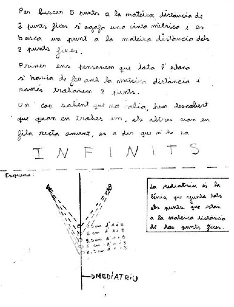 Per buscar D punts a la mateixa distància de
2 punts fixos s'agafa una cinta mètrica i es
busca un punt a la mateixa distància dels
2 punts fixos.
Primer ens pensavem que tota l'estona
s'havia de fer amb la mateixa distància i
només trobavem 2 punts.
Un cop sabent que no valia, hem descobert
que quan en trobes un, els altres van en
fila recta amunt, és a dir que n'hi ha
INFINITS
Esquema:
La mediatriu és la
línia que ajunta tots
els punts que estan
a la mateixa distància
de dos punts fixos.
MEDIATRIU